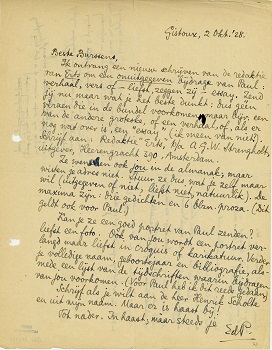 Gistoux, 2 Okt. '28.
Beste Burssens,
Ik ontvang een nieuw schrijven van de redaktie
van Erts om een onuitgegeven bijdrage van Paul:
verhaal, vers of – liefst, zeggen zij – essay. Zend
jij nu maar wat je het beste dunkt: dus géén
verzen die in de bundel voorkomen, maar bijv. een
van de andere grotesken, of een verhaal, of, als er
nog wat over is, een "essay" (ik meen van niet).
Schrijf aan: Redaktie "Erts", p/a A.G.W. Strengholt,
uitgever, Heerengracht 290, Amsterdam.
Ze wenschen ook jou in de almanak, maar
wisten je adres niet. Stuur ze dus wat je zelf maar
wil (uitgegeven of niet, liefst niet, natuurlijk). De
maxima zijn: drie gedichten en 6 blzn. proza. (Dit
geldt ook voor Paul.)
Kan je ze een goed portret van Paul zenden?
liefst een foto. Ook van jou wordt een portret ver-
langd maar liefst in croquis of karikatuur. Verder
je volledige naam, geboortejaar en bibliografie, als-
mede een lijst van de tijdschriften waarin bijdragen
van jou voorkomen. (Voor Paul heb ik dit reeds gedaan.)
Schrijf als je wilt aan de heer Henrik Scholte
en uit mijn naam. Maar er is haast bij!
Tot nader. In haast, maar steeds je
EdP.